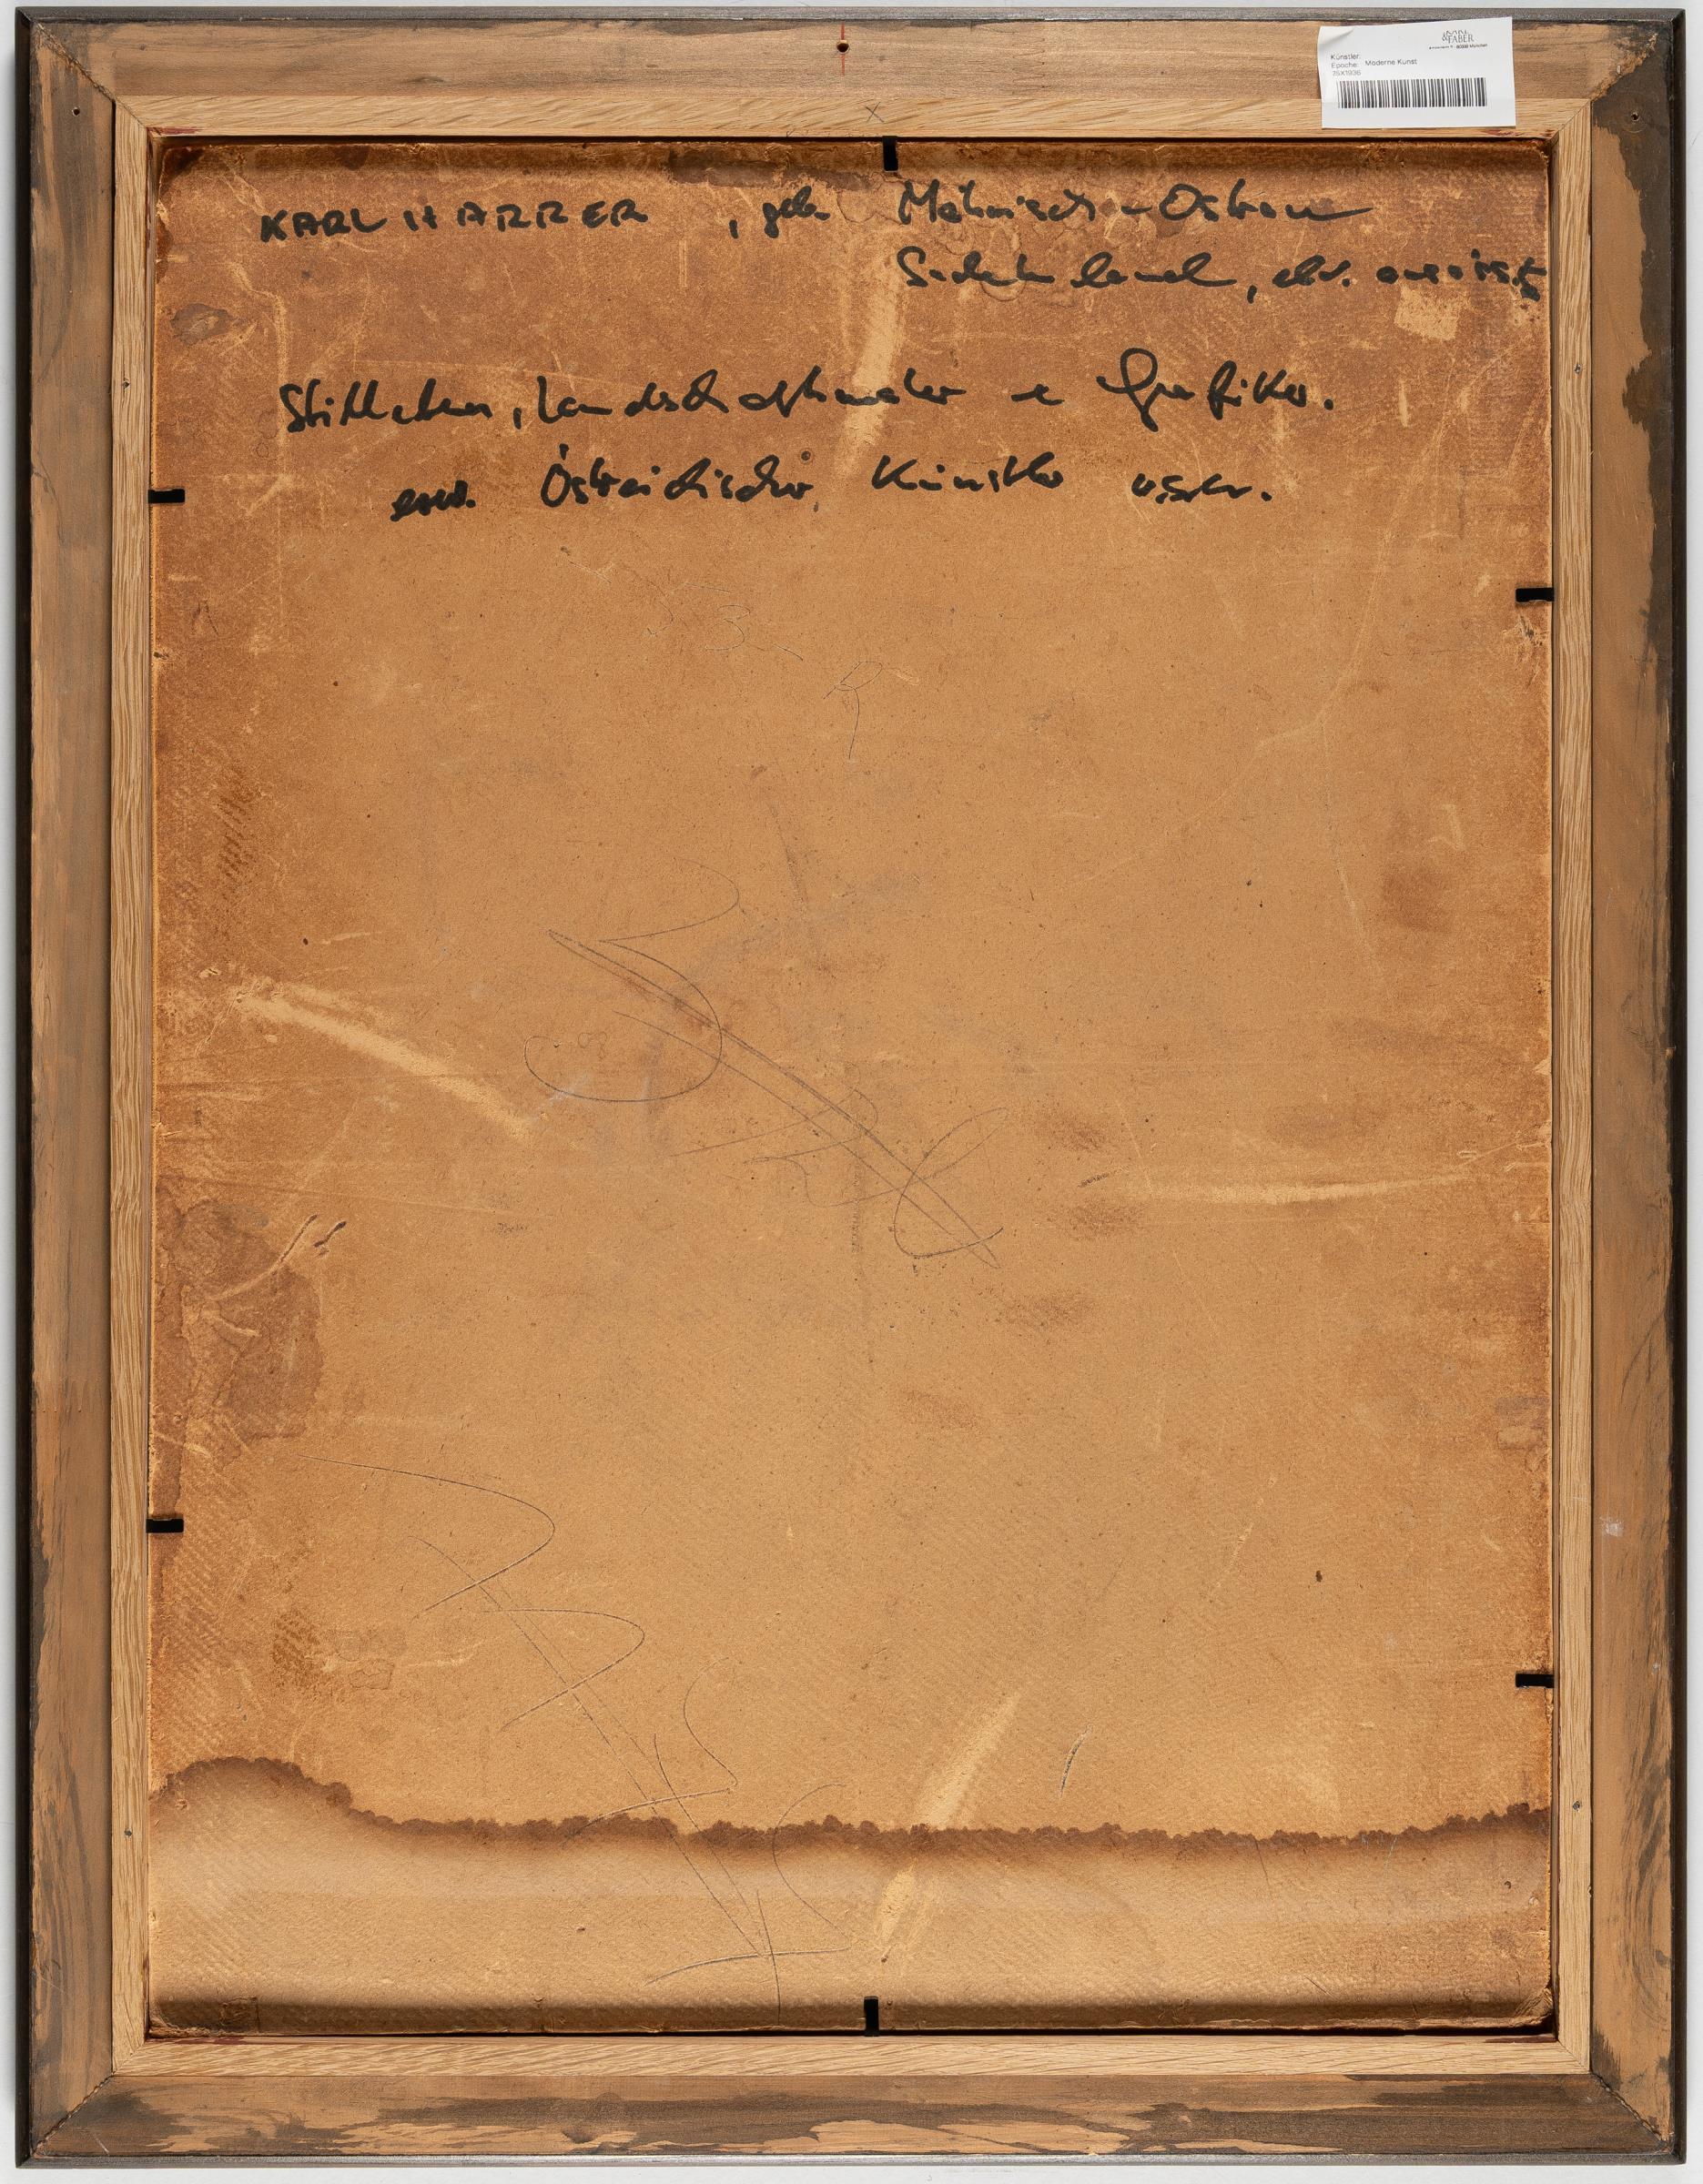 KARL & FABER
Künstler:
Epoche: Moderne Kunst
KARL HARRER, geb. Mährisch-Ostrau
Sudetenland,
Stilleben, Landschaftsmaler u Grafiker.
erw. Östreichischer Künstler usw.